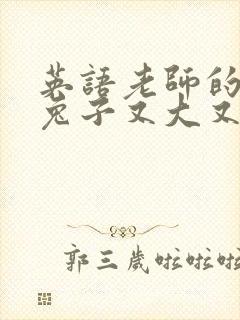 英語老師的
兔子又大又
郭三歲啦啦啦